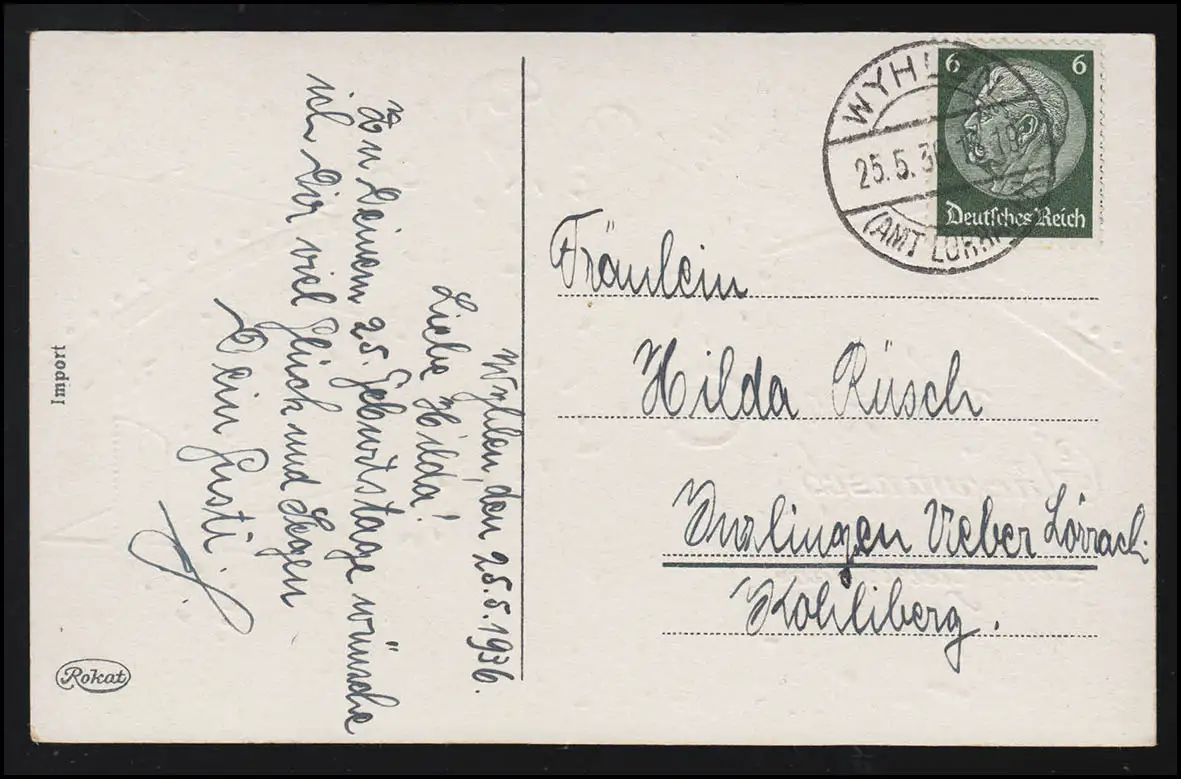 Wyhlen, den 25.5.1936.
Liebe Hilda!
Zu Deinem 25. Geburtstage wünsche
ich Dir viel Glück und Segen
Dein Gusti.
Import
Rokat
WYHLEN
25.5.36
(AMT LÖRR
6 6
Deutsches Reich
Fräulein
Hilda Rüsch
Inzlingen Ueber Lörrach.
Kohliberg.